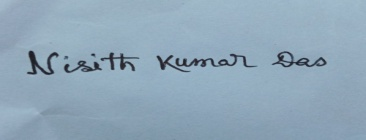 Nisith Kumar Das